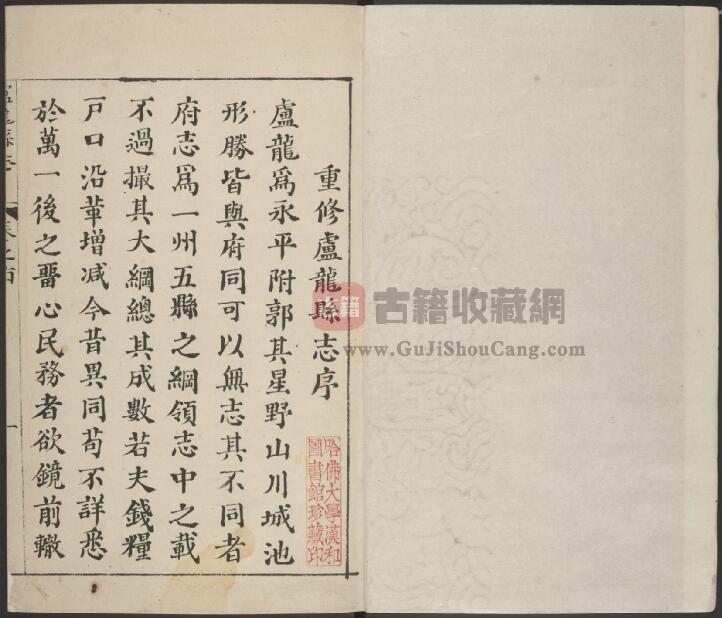 重修盧龍縣志序
盧龍爲永平附郭其星野山川城池
形勝皆與府同可以無志其不同者
府志爲一州五縣之綱領志中之載
不過撮其大綱總其成數若夫錢糧
戸口沿革增减今昔異同苟不詳悉
於萬一後之留心民務者欲鏡前轍
一
哈佛大學漢和
圖書館珍藏印
古籍
古籍收藏網
www.GuJiShouCang.com